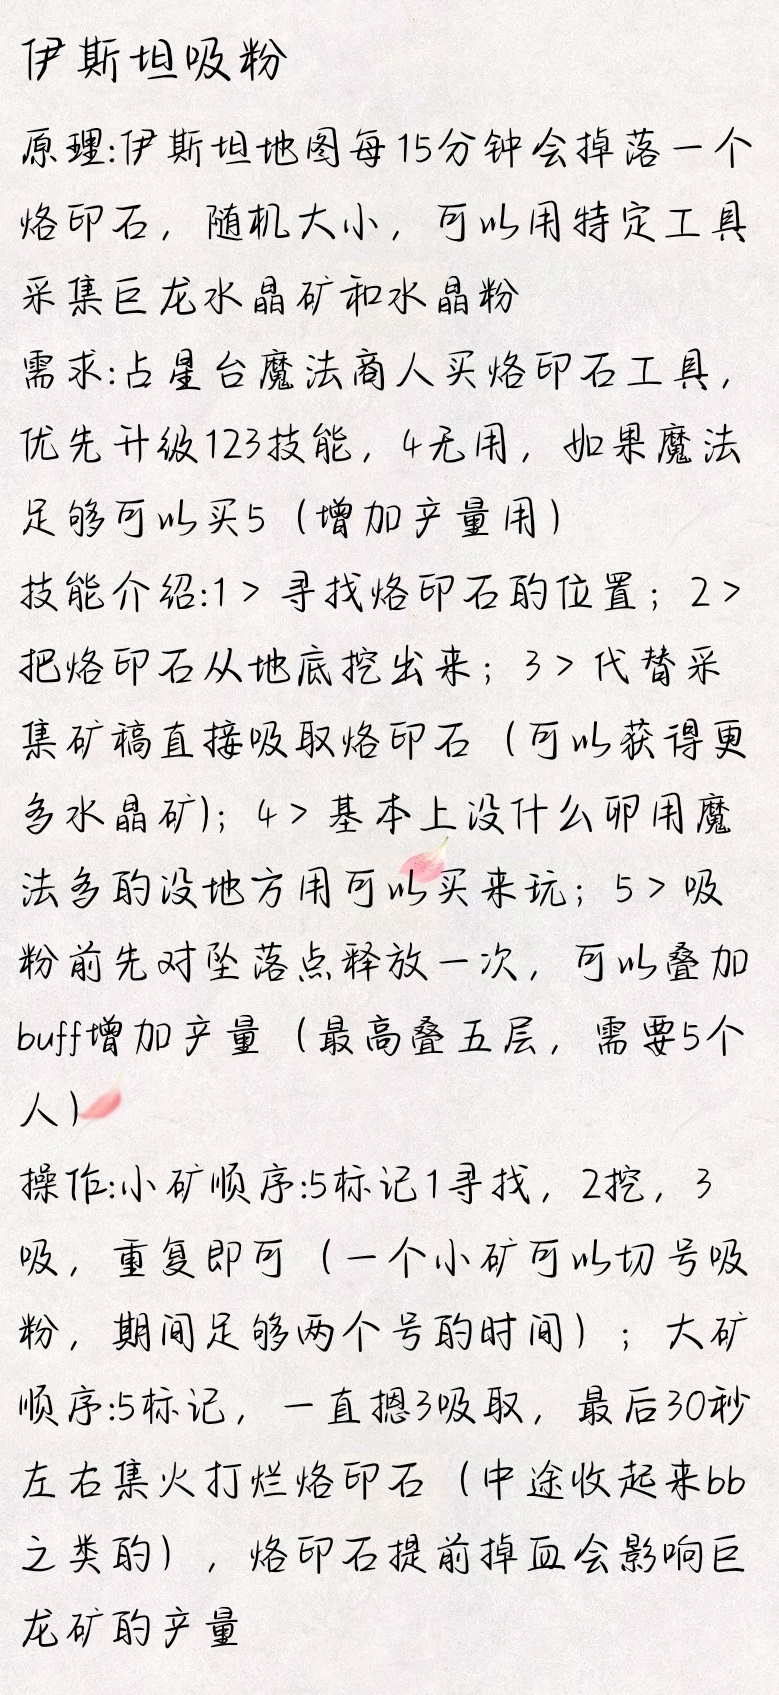 伊斯坦吸粉
原理:伊斯坦地图每15分钟会掉落一个
烙印石，随机大小，可以用特定工具
采集巨龙水晶矿和水晶粉
需求:占星台魔法商人买烙印石工具，
优先升级123技能，4无用，如果魔法
足够可以买5（增加产量用）
技能介绍:1＞寻找烙印石的位置；2＞
把烙印石从地底挖出来；3＞代替采
集矿稿直接吸取烙印石（可以获得更
多水晶矿)；4＞基本上没什么卵用魔
法多的没地方用可以买来玩；5＞吸
粉前先对坠落点释放一次，可以叠加
buff增加产量（最高叠五层，需要5个
人）
操作:小矿顺序:5标记1寻找，2挖，3
吸，重复即可（一个小矿可以切号吸
粉，期间足够两个号的时间）；大矿
顺序:5标记，一直摁3吸取，最后30秒
左右集火打烂烙印石（中途收起来bb
之类的），烙印石提前掉血会影响巨
龙矿的产量